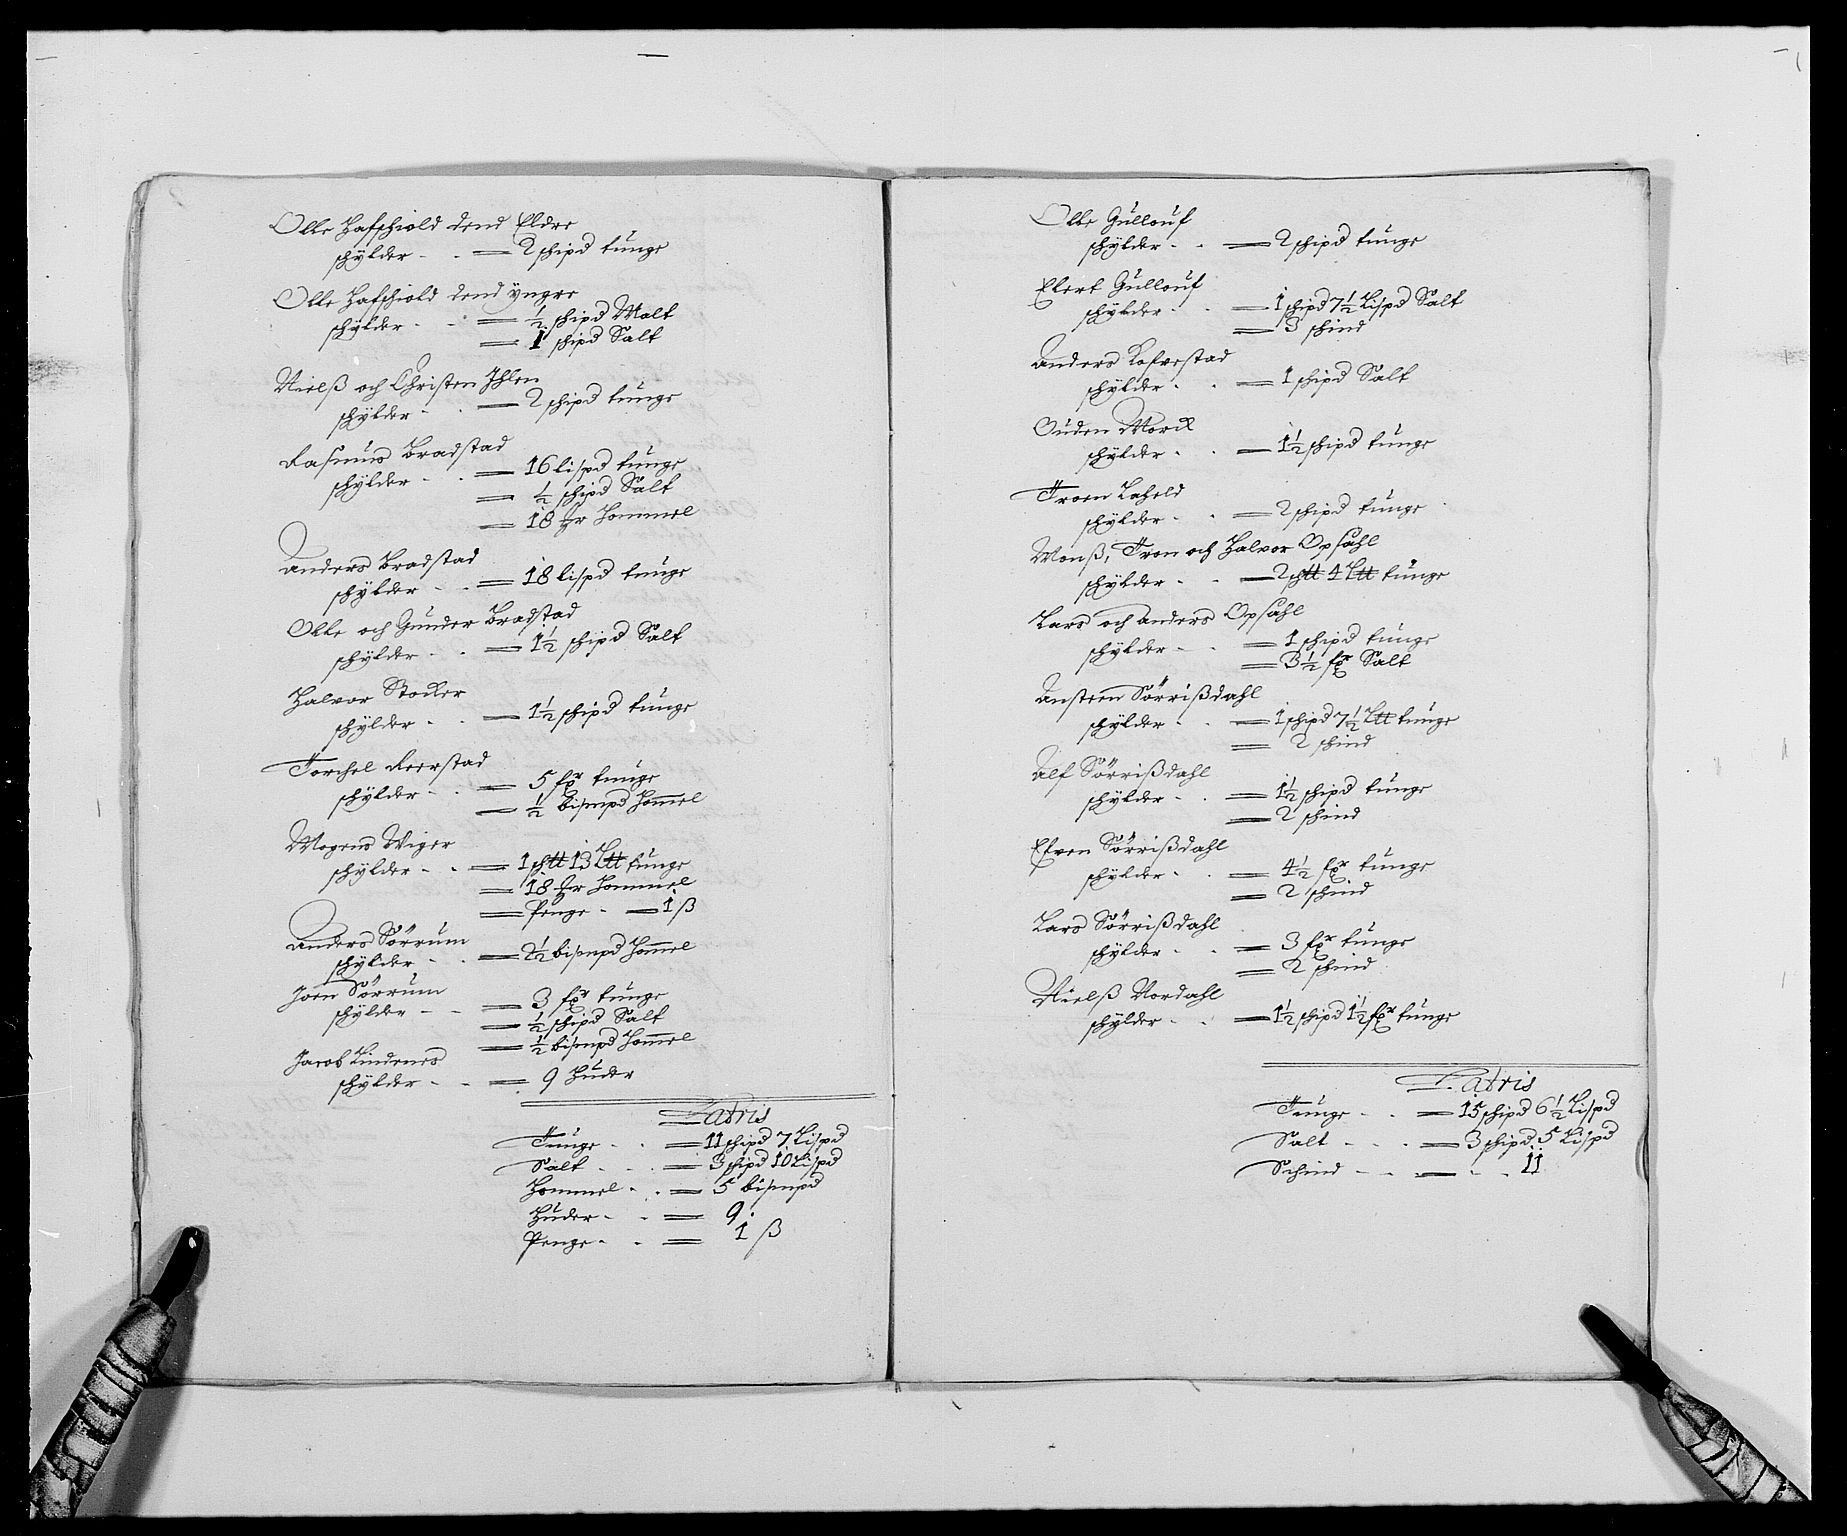 Olle Hafschiold dend Eldre
schylder - - = 2 schipd tunge
Olle Hafschiold dend yngre
schylder - - = ½ schipd Malt
= 1 schipd Salt
Nielß och Christen Ihlen
schylder - - = 2 schipd tunge
Rasmus Bradstad
schylder - - = 16 lispd tunge
= ½ schipd Salt
= 18 Hommel
Anders Bradstad
schylder - - = 18 lispd tunge
Olle och Gunder Bradstad
schylder - - = 1½ schipd Salt
Halvor Stocker
schylder - - = 1½ schipd tunge
Torchel Reerstad
schylder - - = 5 fxr tunge
= ½ bismpd Hommel
Mogens Wiger
schylder - - = 1 sch℔ 13 L℔ tunge
= 18 Hommel
= Penge - = 1 ß
Anders Sörrum
schylder - - = 2½ bismpd Hommel
Joen Sörrum
schylder - - = 3 fxr tunge
= ½ schipd Salt
= ½ bismpd Hommel
Jacob Lindenes
schylder - - = 9 Huder
Latris
Tunge - - = 11 schipd 7 Lispd
Salt - - = 3 schipd 10 Lispd
Hommel - - = 5 bismpd
Huder - - = 9
Penge - - = 1 ß
Olle Gullouf
schylder - - = 2 schipd tunge
Elert Gullouf
schylder - - = 1 schipd 7½ Lispd Salt
= 3 schind
Anders Lofvestad
schylder - - = 1 schipd Salt
Ouden Morck
schylder - - = 1½ schipd tunge
Troen Laheld
schylder - - = 2 schipd tunge
Monß, Tron och Halvor Opsahl
schylder - - = 2 sch℔ 4 L℔ tunge
Lars och Anders Opsahl
schylder - - = 1 schipd tunge
= 3½ fxr Salt
Ansteen Sörrißdahl
schylder - - = 1 schipd 7½ L℔ tunge
= 2 schind
Alf Sörrißdahl
schylder - - = 1½ schipd tunge
= 2 schind
Efven Sörrißdahl
schylder - - = 4½ fxr tunge
= 2 schind
Lars Sörrißdahl
schylder - - = 3 fxr tunge
= 2 schind
Nielß Nordahl
schylder - - = 1½ schipd 1½ fxr tunge
Latris
Tunge - - = 15 schipd 6½ Lispd
Salt - - - = 3 schipd 5 Lispd
Schind - - = - - 11